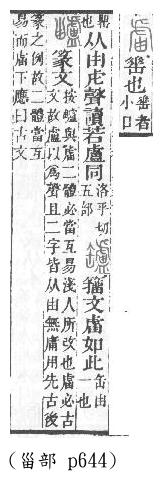 也 𦉈者
小口
罌也 从由虍聲讀若盧同 洛乎切
五部 籒文𧆨如此 缶由
一也
篆文 按與𧆨二體必當互易淺人所改也𧆨必古
文故盧以爲聲且二字皆从由無庸用先古後
篆之例故二體當互
易而𧆨下應曰古文
(甾部 p644)